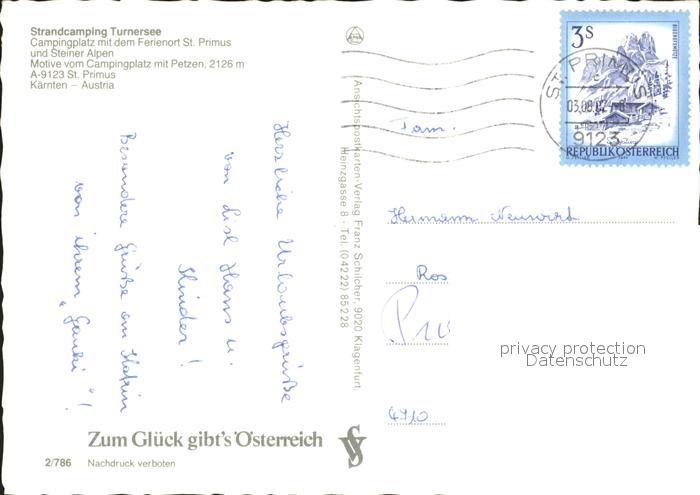 Strandcamping Turnersee
Campingplatz mit dem Ferienort St. Primus
und Steiner Alpen
Motive vom Campingplatz mit Petzen, 2126 m
A-9123 St. Primus
Kärnten – Austria
Herzliche Urlaubsgrüße
von Hans u.
Kinder!
Besondere Grüße an
von ihrem
Ansichtspostkarten-Verlag Franz Schilcher, 9020 Klagenfurt,
Heinzgasse 8 · Tel. (04222) 85228
3S
REPUBLIK ÖSTERREICH
ST. PRIMUS
9123
Fam.
Hermann
Ros
4910
privacy protection
Datenschutz
Zum Glück gibt's Österreich
2/786 Nachdruck verboten